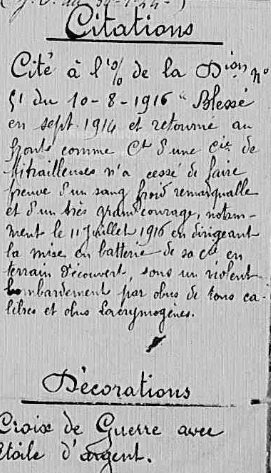 Citations
Cité à l'O/o de la Dion N°
51 du 10-8-1916 "Blessé
en sept 1914 et retourné au
front comme Ct d'une Cie de
Mitrailleuses n'a cessé de faire
preuve d'un sang froid remarquable
et d'un très grand courage, notam-
ment le 11 juillet 1916 en dirigeant
la mise en batterie de sa Cie en
terrain découvert, sous un violent
bombardement par obus de tous ca-
libres et obus lacrymogènes.
Décorations
Croix de Guerre avec
étoile d'argent.